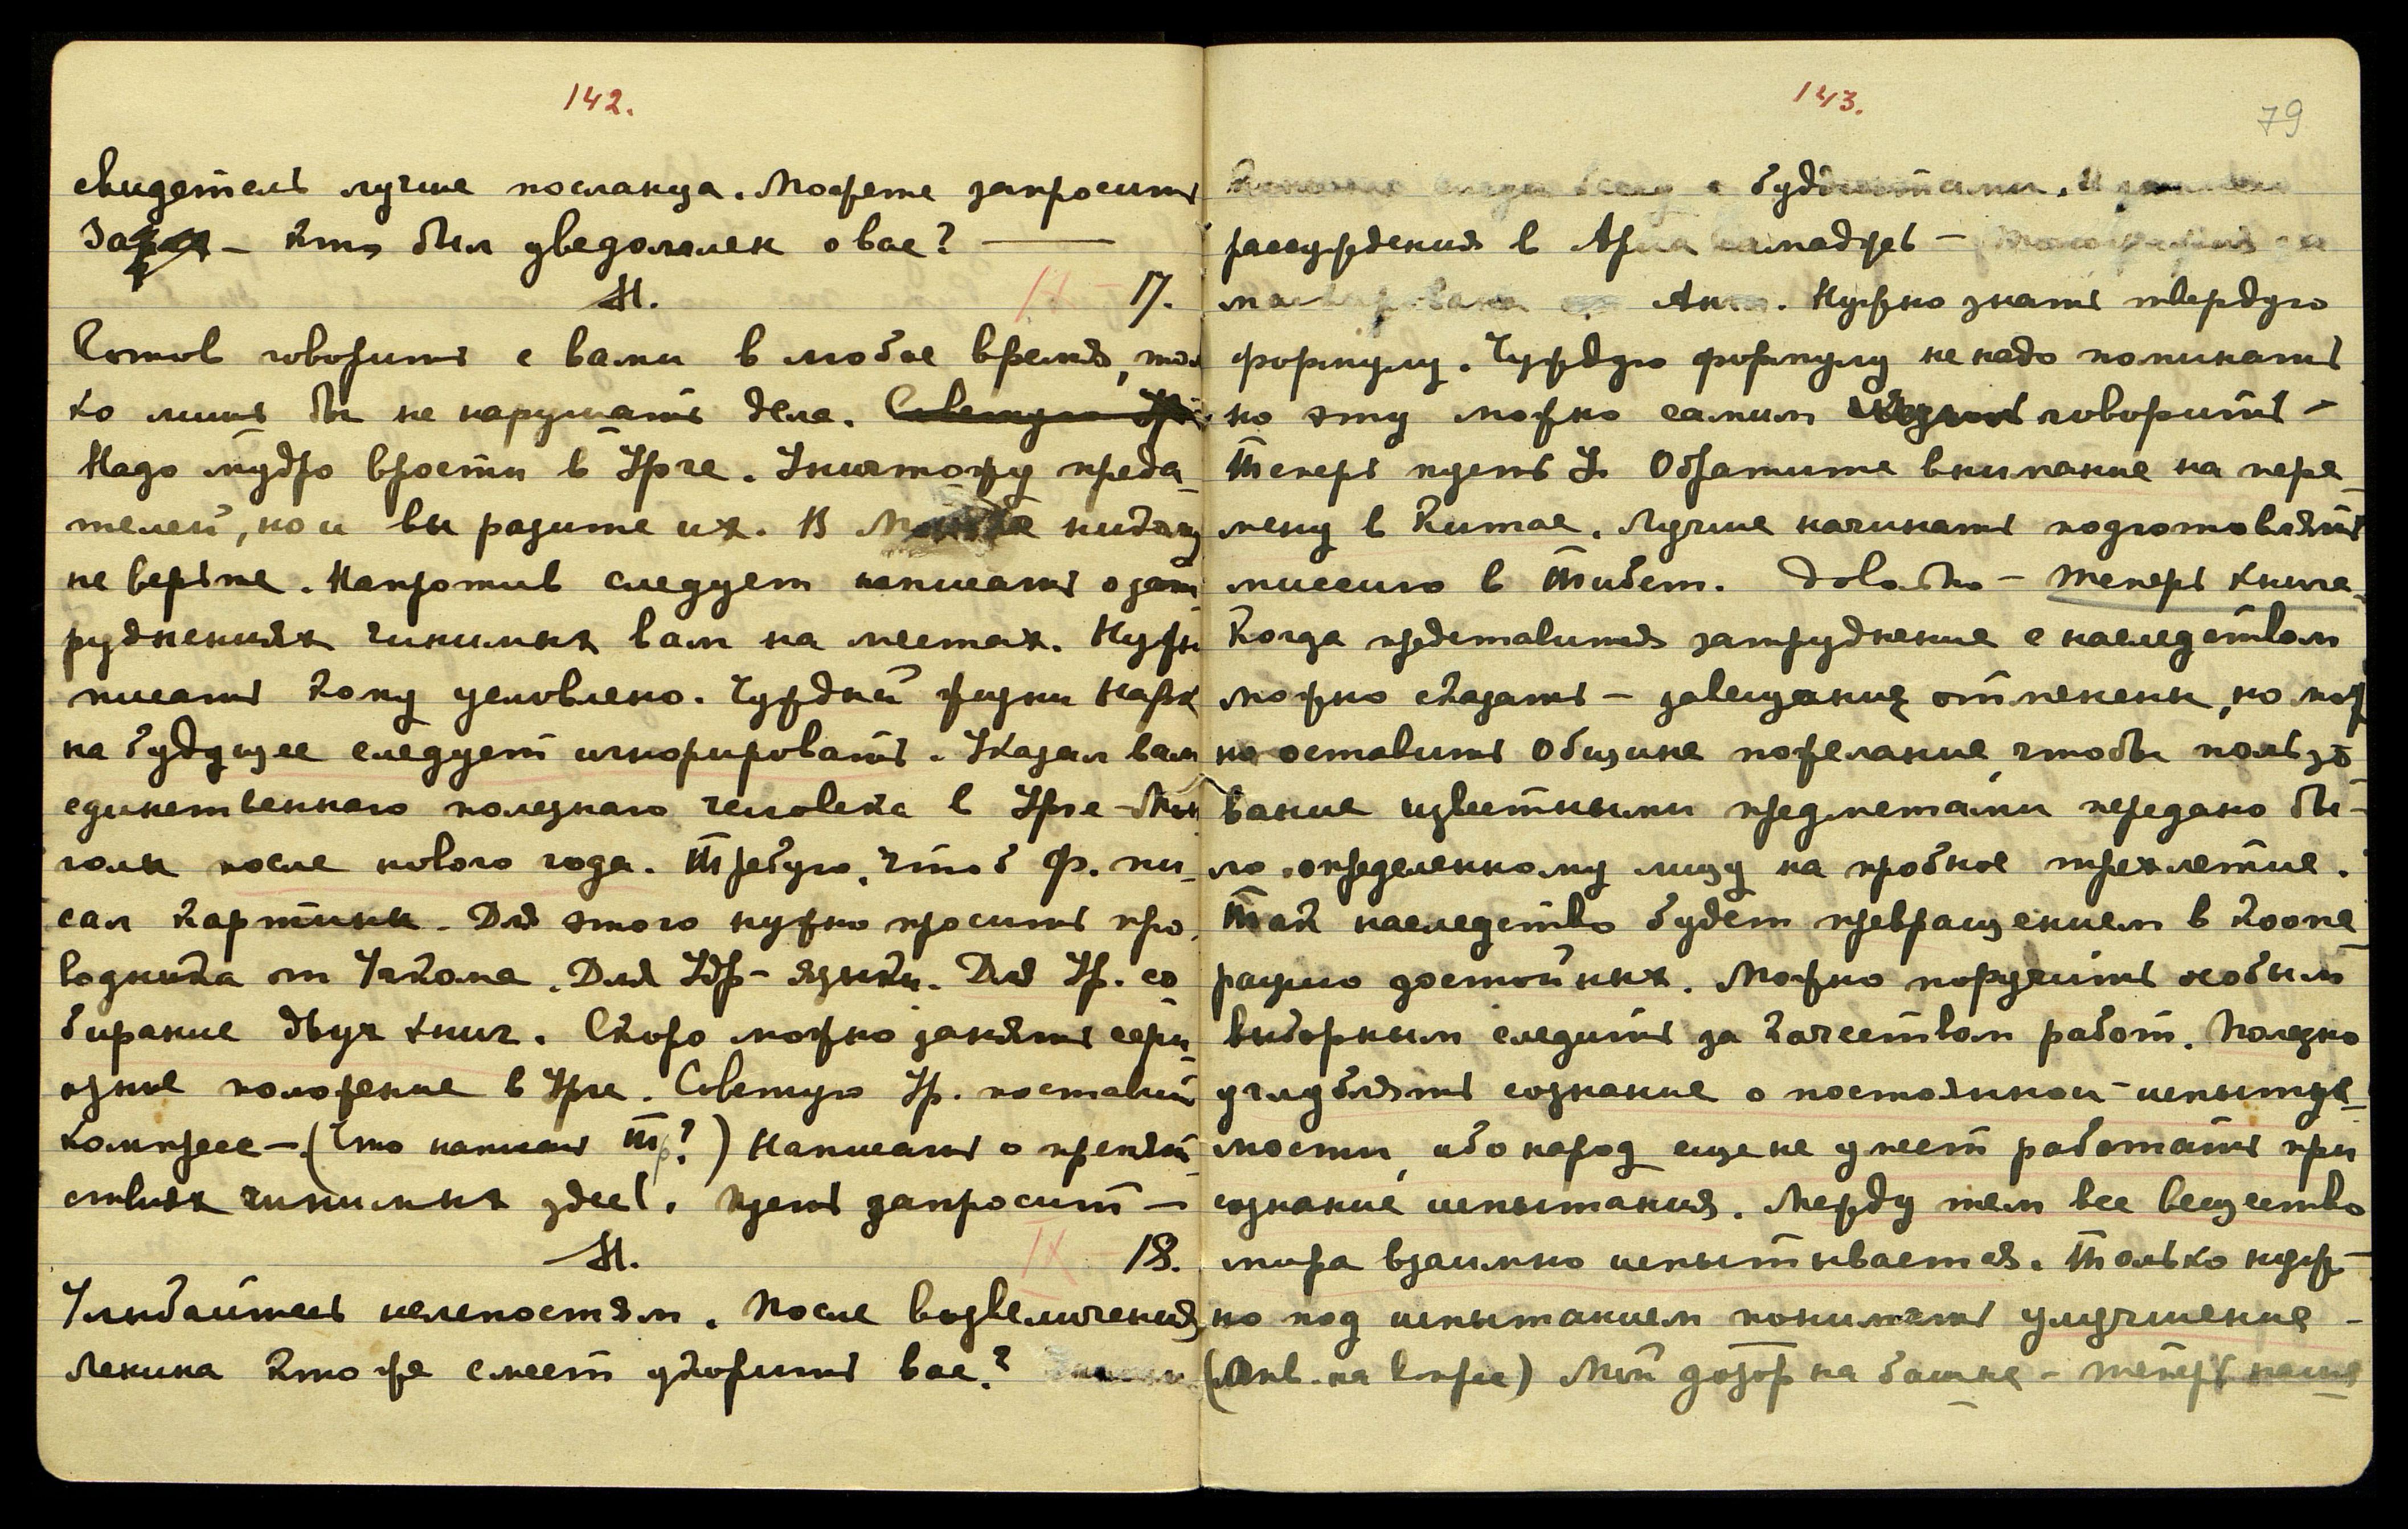 142.
свидетель лучше посланца. Можете запросить
За – кто был уведомлен о вас? —
М. IX – 17.
Готов говорить с вами в любое время, толь
ко лишь бы не нарушать дела. Советую
Надо мудро врости в Урге. Уничтожу преда-
телей, но и вы разите их. В никому
не верьте. Напротив следует написать о зат
руднениях чинимых вам на местах. Нужн
писать кому условлено. Чуждый жизни
на будущее следует игнорировать. Указал вам
единственного полезного человека в Урге – Мон
голы после нового года. Требую, чтоб Ф. пи-
сал картины. Для этого нужно просить про-
водника от Учкома. Для Удр – языки. Для Ур. со
бирание двух книг. Скоро можно занять серь-
озное положение в Урге. Советую Ур. поставить
компресс – (Что написать Тр?) Написать о препят
ствиях чинимых здесь. Пусть запросит –
М. IX 18.
Улыбайтесь нелепостям. После возвеличения
Ленина кто же смеет укорить вас?
143.
79
буддистами. И
рассуждения в –
Нужно знать твердую
формулу. Чуждую формулу не надо поминать
но эту можно самим говорить –
Теперь пусть У. Обратите внимание на пере-
мену в Китае. Лучше начинать подготовлять
миссию в Тибет. Довольно – теперь книга.
Когда представится затруднение с наследством
можно сказать – завещания отменены, но мож
но оставить Общине пожелание, чтобы пользо
вание известными предметами передано бы-
ло определенному лицу на пробное трехлетие.
Так наследство будет превращением в коопе
рацию достойных. Можно поручить особым
выборным следить за качеством работ. Полезно
углублять сознание о постоянной испытуе-
мости, ибо народ еще не умеет работать при
сознание испытания. Между тем все вещество
мира взаимно испытывается. Только нуж-
но под испытанием понимать улучшение –
Мой дозор на башне – теперь